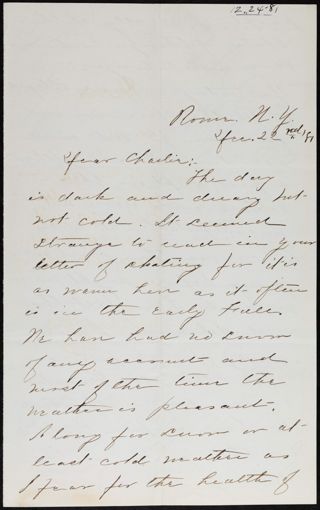 12.24.81
Rome. N. Y.
Dec. 22nd /81
Dear Charlie:
The day
is dark and dreary but
not cold. It seemed
strange to read in your
letter of skating for it is
as warm here as it often
is in the Early Fall.
We have had no snow
of any account and
most of the time the
weather is pleasant.
I long for snow or at-
least cold weather as
I fear for the health of